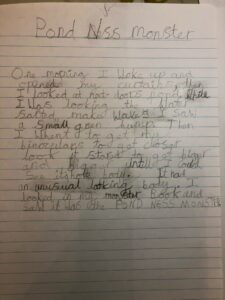 Pond Niss Monster
One morning I Woke up and
opened my curtains then
I looked at next dors pond. While
I Was looking the Water
Sarted make Waves I Saw
a Small green hump. Then
I Whent to get my
binoculars to get closer
look it stared to get biger
and biger until I coud
See its hole body. It had
in unusual looking body. I
looked in my monster Book and
said it was the POND NESS MONSTER